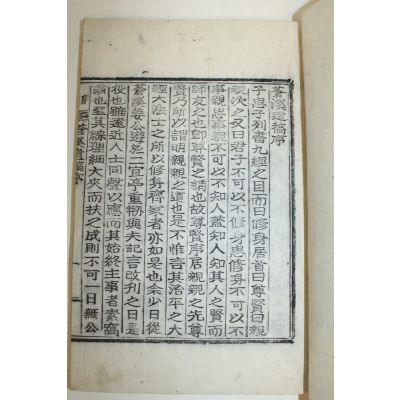 蒼溪遺稿序
子思子列書九經之目而曰修身居首曰尊賢曰親
親次之又曰君子不可以不修身思修身不可以不
事親思事親不可以不知人蓋知人知其人之賢而
師友之也卽尊賢之謂也故尊賢序居親親之先尊
賢乃所以講明親親之道也是不惟言其治平之大
經大法士之所以修身齊家者亦如是也余少日從
蒼溪姜公遊忘二宜亭重刱與夫記言改刋之日是
役也雖遠近人士同聲以應而其始終主事者素窩
翁也至其綜理細大夾而扶之成則不可一日無公
蒼溪遺稿序